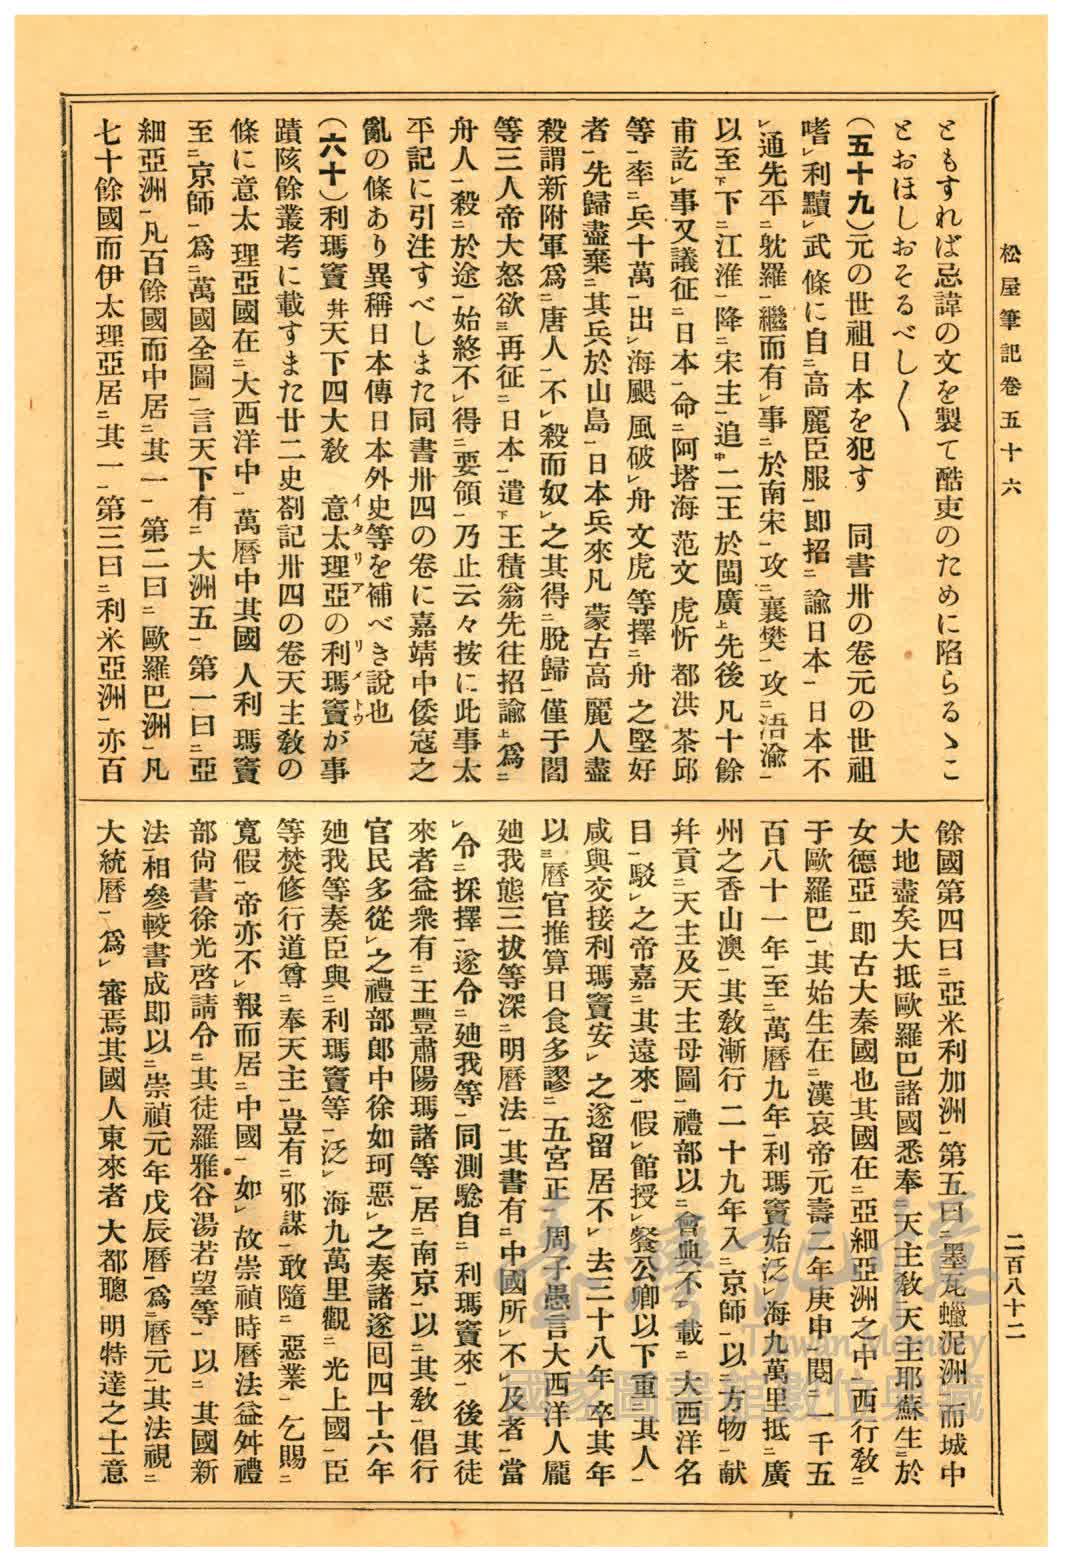 松屋筆記卷五十六
二百八十二
ともすれば忌諱の文を製て酷吏のために陷らるゝこ
とおほしおそるべし〱
(五十九)元の世祖日本を犯す 同書卅の卷元の世祖
嗜レ利黷レ武條に自二高麗臣服一即招二諭日本一日本不
レ通先平二耽羅一繼而有レ事二於南宋一攻二襄樊一攻二浯渝一
以至下下二江淮一降二宋主一追中二王於閩廣上先後凡十餘
甫訖レ事又議征二日本一命二阿塔海范文虎忻都洪茶邱
等一率二兵十萬一出レ海颶風破レ舟文虎等擇二舟之堅好
者一先歸盡棄二其兵於山島一日本兵來凡蒙古高麗人盡
殺謂新附軍爲二唐人一不レ殺而奴レ之其得二脫歸一僅于閶
等三人帝大怒欲三再征二日本一遣下王積翁先往招諭上爲二
舟人一殺二於途一始終不レ得二要領一乃止云々按に此事太
平記に引注すべしまた同書卅四の卷に嘉靖中倭寇之
亂の條あり異稱日本傳日本外史等を補べき說也
(六十)利瑪竇幷天下四大敎 意太理亞イタリアの利瑪竇リメトウが事
蹟陔餘叢考に載すまた廿二史劄記卅四の卷天主敎の
條に意太理亞國在二大西洋中一萬曆中其國人利瑪竇
至二京師一爲二萬國全圖一言天下有二大洲五一第一曰二亞
細亞洲一凡百餘國而中居二其一一第二曰二歐羅巴洲一凡
七十餘國而伊太理亞居二其一一第三曰二利米亞洲一亦百
餘國第四曰二亞米利加洲一第五曰二墨瓦蠟泥洲一而城中
大地盡矣大抵歐羅巴諸國悉奉二天主敎一天主耶蘇生二於
女德亞一即古大秦國也其國在二亞細亞洲之中一西行敎二
于歐羅巴一其始生在二漢哀帝元壽二年庚申一閱二一千五
百八十一年一至二萬曆九年一利瑪竇始泛レ海九萬里抵二廣
州之香山澳一其敎漸行二十九年入二京師一以二方物一獻
幷貢二天主及天主母圖一禮部以二會典不一レ載二大西洋名
目一駁レ之帝嘉二其遠來一假レ館授レ餐公卿以下重二其人一
咸與交接利瑪竇安レ之遂留居不レ去三十八年卒其年
以三曆官推算日食多謬二五宮正一周子愚言大西洋人龐
廸我態三拔等深二明曆法一其書有二中國所レ不レ及者一當
レ令二採擇一遂令二廸我等一同測驗自二利瑪竇來一後其徒
來者益衆有二王豐肅陽瑪諸等一居二南京一以二其敎一倡行
官民多從レ之禮部郞中徐如珂惡レ之奏諸遂回四十六年
廸我等奏臣與二利瑪竇等一泛レ海九萬里觀二光上國一臣
等焚修行道尊二奉天主一豈有二邪謀一敢隨二惡業一乞賜二
寬假一帝亦不レ報而居二中國一如レ故崇禎時曆法益舛禮
部尙書徐光啓請令二其徒羅雅谷湯若望等一以二其國新
法一相參較書成即以二崇禎元年戊辰曆一爲二曆元一其法視二
大統曆一爲レ審焉其國人東來者大都聰明特達之士意
臺灣記憶
Taiwan Memory
國家圖書館數位典藏